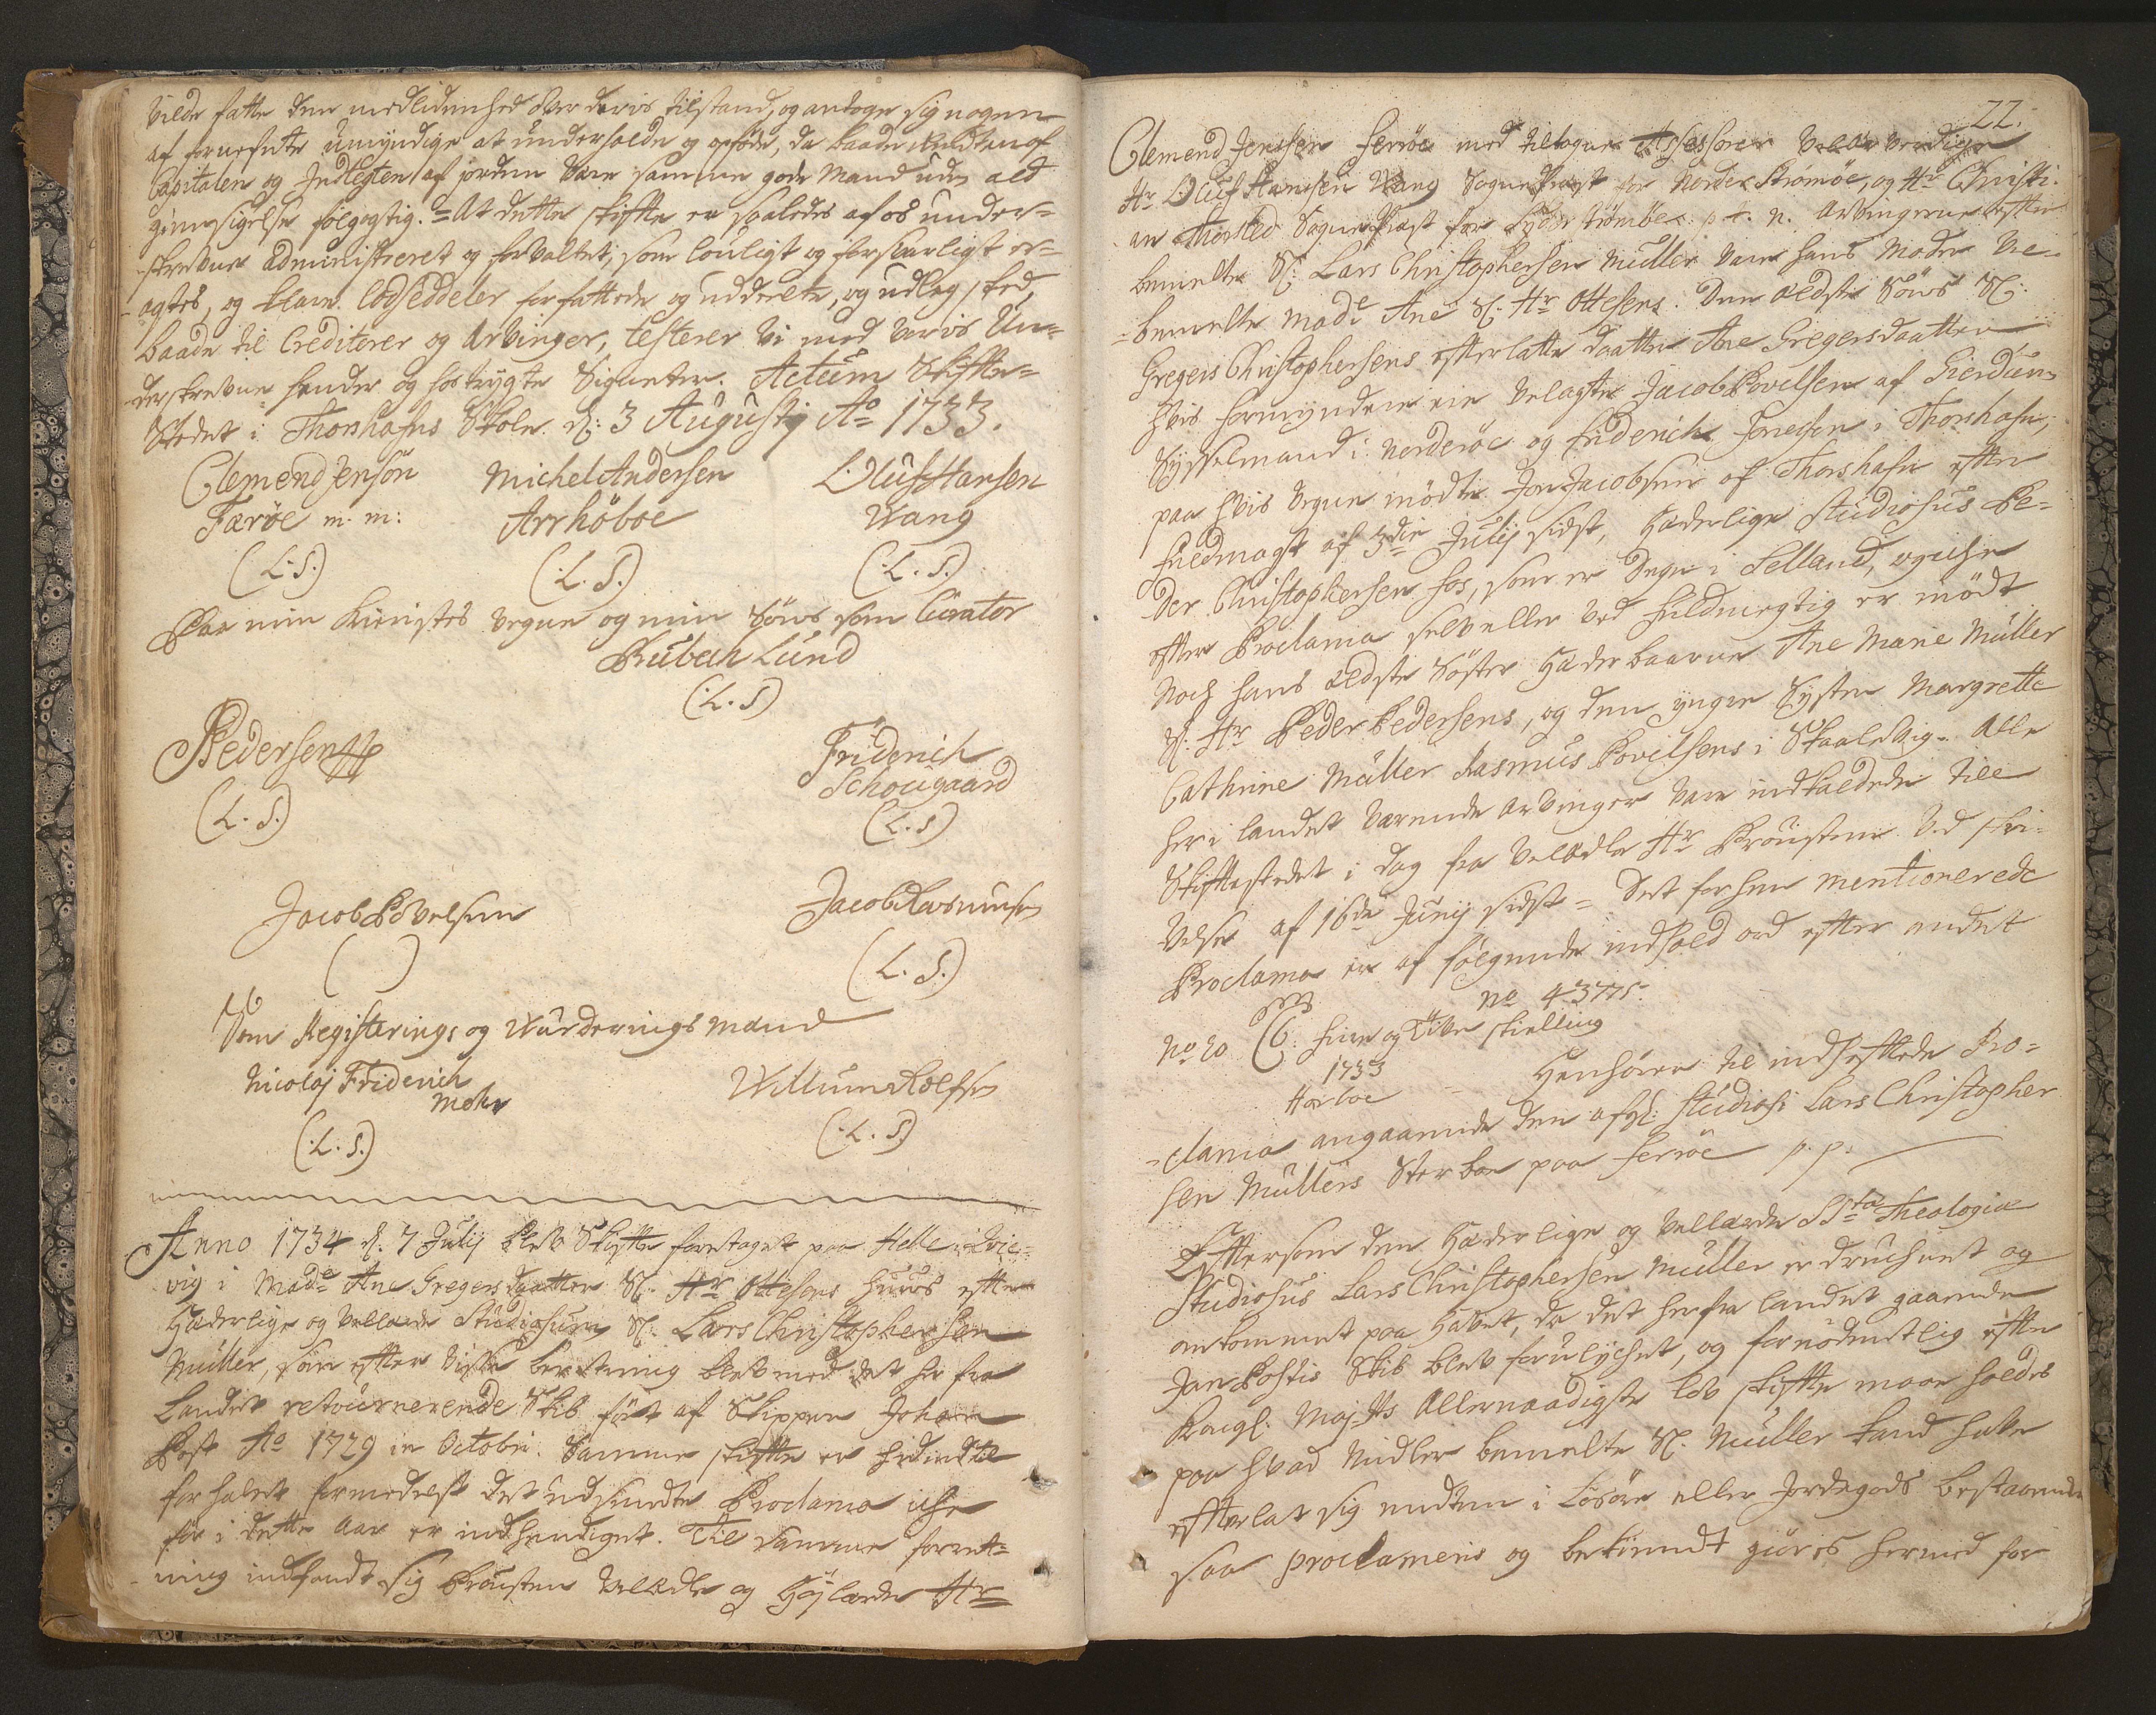 vilde fatte den medlidenhed over deris tilstand, og antoge sig nogen
af fornefnte umyndige at underholde og opføde, da baade Renten af
Capitalen og Indtegten af jorden være samme gode Mand uden ald
giensigelse følgagtig. = At dette skifte er saaledes af os under=
skrevne administreret og forvaltet, som lovligt og forsvarligt er=
agtes, og klare Lodseddeler forfattede og uddeelte, og udleg skeed,
baade til Creditorer og Arvinger, testerer vi med voris Un=
derskrevne hender og hostrygte Signeter. Actum Skifte=
Stedet i Thorshafns Skole d: 3 Augustij Ao 1733.
Clemend Jensøn Michel Andersen Oluf Hansen
Færöe m. m: Arrhöboe Wang
(L.S.) (L.S.) (L.S.)
Paa min Kieristes vegne og min Söns som Curator
Rubech Lund
(L.S)
Pedersen Friderich
Schougaard
(L.S.) (L.S)
Jacob Povelsen Jacob Rasmusen
( ) (L.S.)
Som Registerings og Wurderings mænd
Nicolaj Friderich Willum Rolfsen
Mohr
(L.S.) (L.S)
Anno 1734 d. 7 Julij blev Skifte foretaget paa Helle i Qvi=
vig i Made Ane Gregersdaatter Sl. Hr Ottesens huus efter
Hæderlige og Vellærde Studiosum Sl. Lars Christophersen
Müller, som efter visse beretning blev med det her fra
Landet retournerende Skib ført af Skipper Johan
Post Ao 1729 in Octobri. Samme skifte er hidindtil
forhalet formedelst det udsendte Proclama icke
før i dette Aar er indhendiget. Til samme forret=
ning indfandt sig Prousten VelÆdle og Høylærde Hr
22.
Clemend Jenssen Ferröe med tiltagne Assessorer Velærværdige
Hr Oluf Hansen Wang Sognepræst for Norder Strømöe, og Hr Christi=
an Thorsted Sognepræst for Syderströmöe p. t. n. Arvingerne efter
bemelte Sl. Lars Christophersen Müller vare hans Moder Vel=
bemelte Made Ane Sl. Hr Ottesens. Den ældste Søns Sl.
Gregers Christophersens efterlatte daatter Ane Gregersdaatter
hvis formyndere ere Velagte Jacob Povelsen af Gierdum
Sysselmand i Norderöe og Friderich Jonessen i Thorshafn,
paa hvis vegne mødte Jon Jacobsen af Thorshafn efter
fuldmagt af 3die Julij sidst, Hæderlige Studiosus Pe=
der Christophersen hos, som er Degn i Selland, og icke
efter Proclama selv eller ved fuldmegtig er mødt
Noch hans ældste Søster Hæderbaarne Ane Marie Müller
Sl. Hr Peder Pedersens, og den yngere Syster Margrette
Cathrine Müller Rasmus Povelsens i Skaalevig. Alle
her i landet værende arvinger vare indkaldede till
Skiftestedet i dag fra VelÆdle Hr Prousten ved skri=
velse af 16de Junij sidst = Det forhen mentionerede
Proclama er af følgende indhold ord efter andet
No 43775.
No 20 (6. fire og tive skielling
1733
Horboe Henhörer til indheftede Pro=
clama angaaende den afgl: Studiosi Lars Christopher
sen Müllers Sterboe paa Ferröe p. p.
Eftersom den Hæderlige og Vellærde SS.ta Theologiæ
Studiosus Lars Christophersen Müller er druchnet og
omkommet paa Havet, da det her fra landet gaaende
Jan Postis Skib blev forulychet, og fornødentlig efter
Kongl. Mayts Allernaadigste Lov skifte maae holdes
paa hvad Midler bemelte Sl. Müller kand have
efterlat sig endten i Løsøre eller Jordegods bestaaende
saa proclameris og bekiendt giøres hermed for